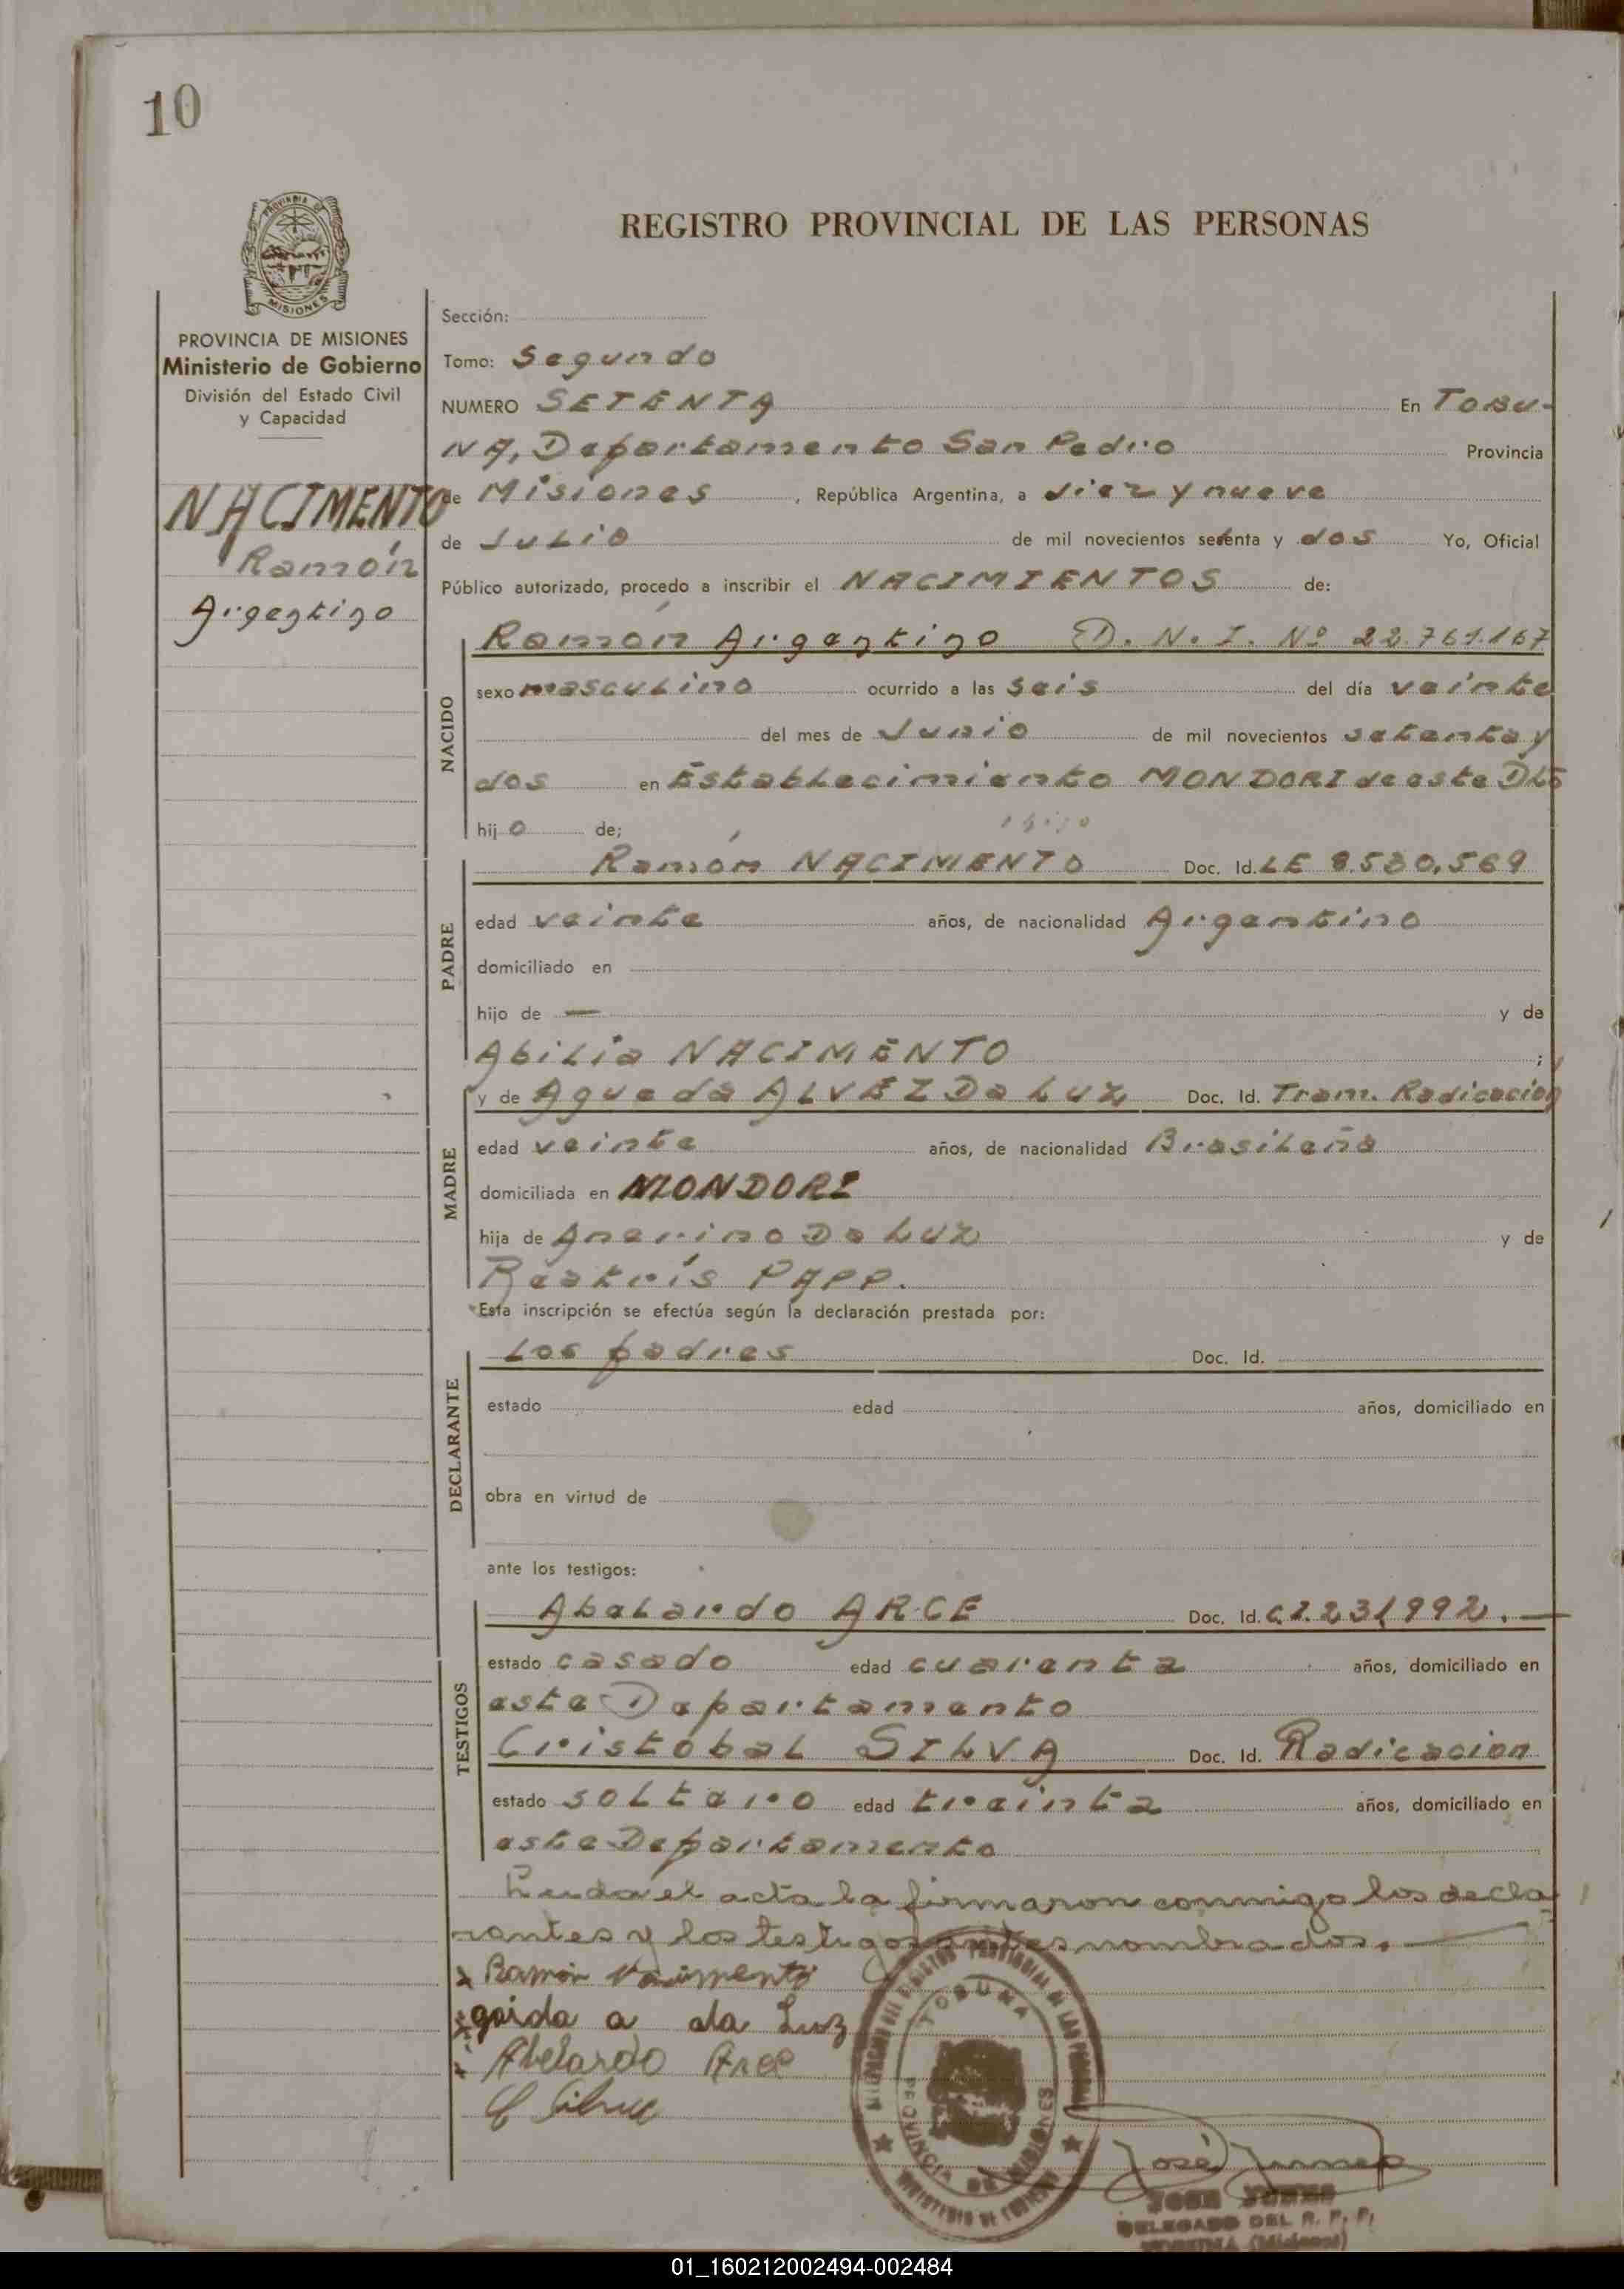 10
PROVINCIA DE
MISIONES
REGISTRO PROVINCIAL DE LAS PERSONAS
PROVINCIA DE MISIONES
Ministerio de Gobierno
División del Estado Civil
y Capacidad
NACIMENTO
Ramón
Argentino
Sección:
Tomo: Segundo
NUMERO SETENTA En TOBU-
NA, Departamento San Pedro Provincia
de Misiones, República Argentina, a diez y nueve
de Julio de mil novecientos setenta y dos Yo, Oficial
Público autorizado, procedo a inscribir el NACIMIENTOS de:
NACIDO
Ramón Argentino D.N.I. Nº 22.761.167
sexo masculino ocurrido a las seis del día veinte
del mes de Junio de mil novecientos setenta y
dos en Establecimiento MONDORI de este Dto
hijo de;
PADRE
Ramón NACIMENTO Doc. Id. LE 8.530.569
edad veinte años, de nacionalidad Argentino
domiciliado en
hijo de — y de
Abilia NACIMENTO ;
MADRE
y de Agueda ALVEZ Da Luz Doc. Id. Tram. Radicacion
edad veinte años, de nacionalidad Brasileña
domiciliada en MONDORI
hija de Anerino Da Luz y de
Beatrís PAPP.
Esta inscripción se efectúa según la declaración prestada por:
DECLARANTE
Los padres Doc. Id.
estado edad años, domiciliado en
obra en virtud de
ante los testigos:
TESTIGOS
Abelardo ARCE Doc. Id. C.I. 231992.—
estado casado edad cuarenta años, domiciliado en
este Departamento
Cristóbal SILVA Doc. Id. Radicacion
estado soltero edad treinta años, domiciliado en
este Departamento
Leida el acta la firmaron conmigo los decla
rantes y los testigos antes nombrados.
Ramón Nacimento
goida a da Luz
Abelardo Arce
C Silva
TOBUNA
PROVINCIA DE MISIONES
MINISTERIO DE GOBIERNO
José
JOSE
DELEGADO DEL R. P. P.
TOBUNA (Misiones)
01_160212002494-002484